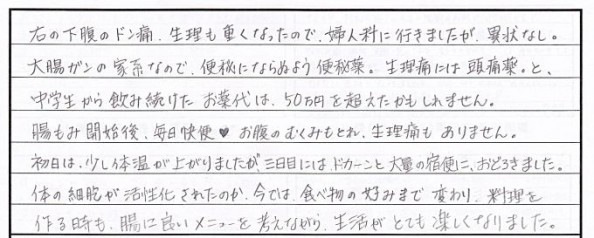 右の下腹のドン痛、生理も重くなったので、婦人科に行きましたが、異状なし。
大腸ガンの家系なので、便秘にならぬよう便秘薬。生理痛には頭痛薬。と、
中学生から飲み続けたお薬代は、50万円を超えたかもしれません。
腸もみ開始後、毎日快便♥お腹のむくみもとれ、生理痛もありません。
初日は、少し体温が上がりましたが、三日目にはドカーンと大量の宿便に、おどろきました。
体の細胞が活性化されたのか、今では、食べ物の好みまで変わり、料理を
作る時も、腸に良いメニューを考えながら、生活がとても楽しくなりました。